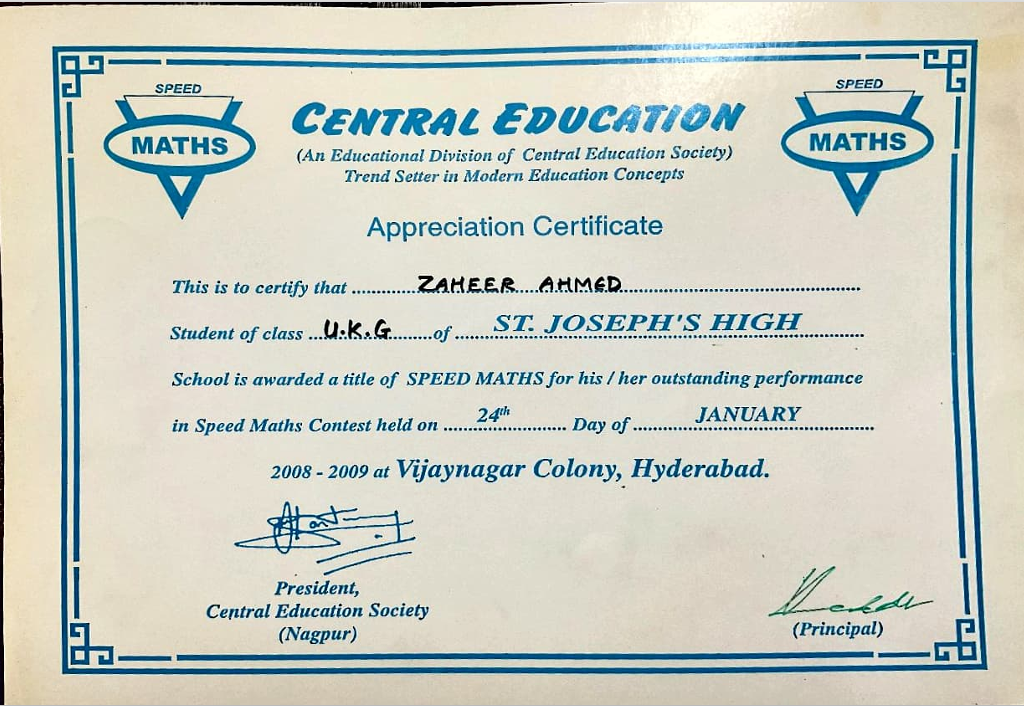 SPEED
MATHS
SPEED
MATHS
CENTRAL EDUCATION
(An Educational Division of Central Education Society)
Trend Setter in Modern Education Concepts
Appreciation Certificate
This is to certify that ZAHEER AHMED
Student of class U.K.G of ST. JOSEPH'S HIGH
School is awarded a title of SPEED MATHS for his / her outstanding performance
in Speed Maths Contest held on 24th Day of JANUARY
2008 - 2009 at Vijaynagar Colony, Hyderabad.
President,
Central Education Society
(Nagpur)
(Principal)